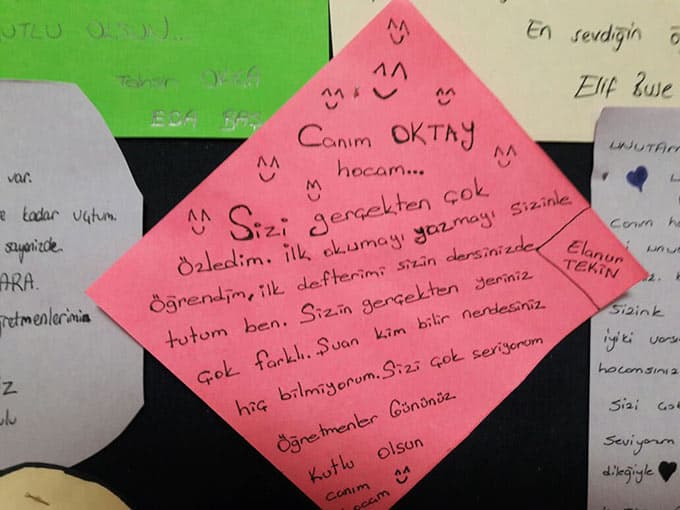 UTLU OLSUN...
Tahsin
EDA BAŞ
En sevdiğin ö
Elif Buse
var.
e kadar uçtum.
sayenizde
ARA.
retmenlerimin
Z
ulu
Canım OKTAY
hocam...
Sizi gerçekten çok
Özledim. ilk okumayı yazmayı sizinle
Öğrendim, ilk defterimi sizin dersinizde
tutum ben. Sizin gerçekten yeriniz
çok farklı. Şuan kim bilir nerdesiniz
hiç bilmiyorum. Sizi çok seriyorum
Öğretmenler Gününüz
Kutlu olsun
canım
hocam
Elanur
TEKİN
UNUTAM
Canım ho
unu
Sizink
iyiki varsı
hocamsınız
Sizi çok
Seviyorum
dileğiyle